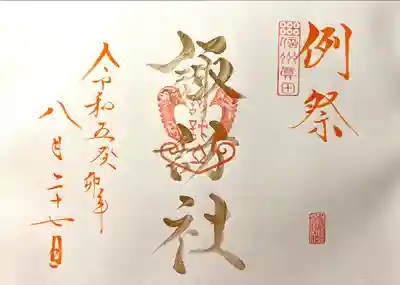 例祭
信州眞田
諏訪社
令和五癸卯年
八月二十七日